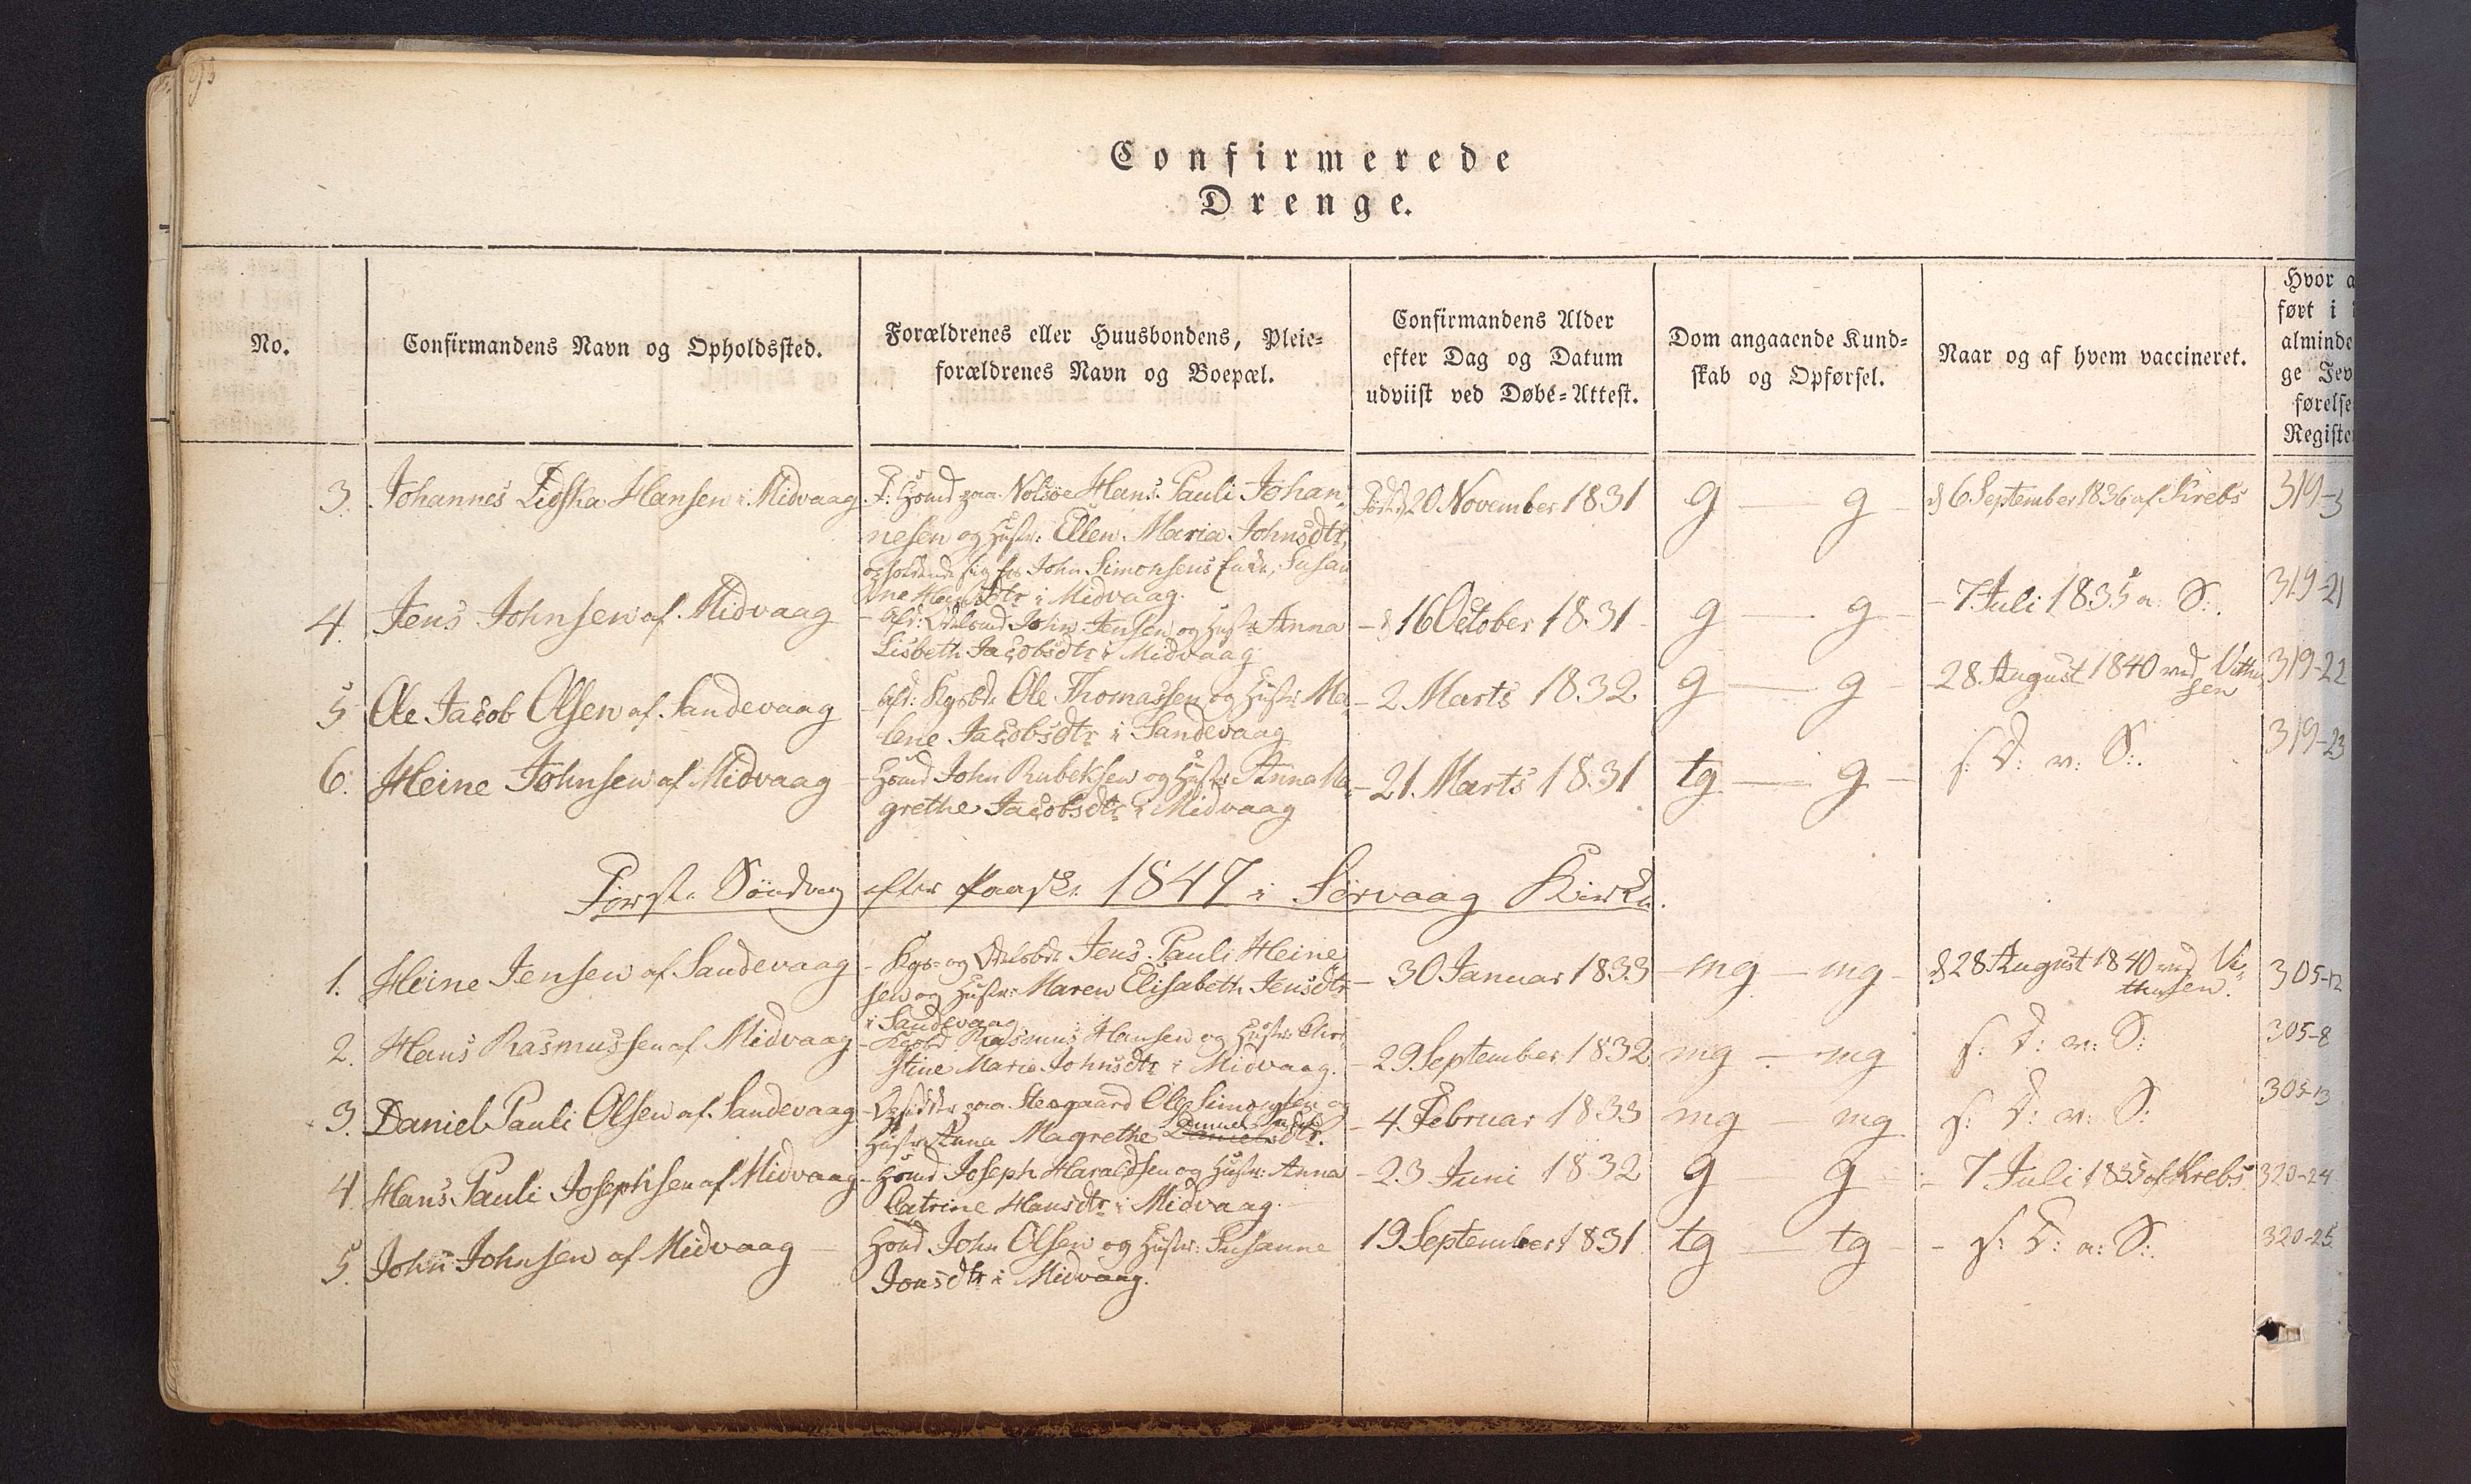 93
Confirmerede
Drenge.
No.
Confirmandens Navn og Opholdssted.
Forældrenes eller Huusbondens, Pleie=
forældrenes Navn og Boepæl.
Confirmandens Alder
efter Dag og Datum
udviist ved Døbe=Attest.
Dom angaaende Kund=
skab og Opførsel.
Naar og af hvem vaccineret.
Hvor a
ført i
alminde
ge Jev
førelse
Registe
3. Johannes Hansen i Midvaag F: Hsmd paa Nolsöe Hans Pauli Johan= Född d 20 November 1831 g — g d 6 September 1836 af Krebs 319-3
nesen og Hustr: Ellen Maria Johnsdtr,
opholdende sig hos John Simonsens Enke, Susan
ne i Midvaag.
4. Jens Johnsen af Midvaag – Afd: John Jensen og Hustr Anna – d 16 October 1831 g — g – 7 Juli 1835 a: S:. 319-21
Lisbeth Jacobsdtr i Midvaag
5 Ole Jacob Olsen af Sandevaag – Afd: Kgsbd: Ole Thomassen og Hustr: Ma= – 2 Marts 1832 g — g 28 August 1840 ved Vithu 319-22
sen
lene Jacobsdtr i Sandevaag
6. Heine Johnsen af Midvaag – Hsmd John Rubeksen og Hustr Anna Ma= – 21 Marts 1831 tg — g – s: D: v: S:. 319-23
grethe Jacobsdtr i Midvaag
Förste Söndag efter Paaske 1847 i Sörvaag Kirke.
1. Heine Jensen af Sandevaag – Kgs= og Odelsbd: Jens Pauli Heine – 30 Januar 1833 – mg – mg – d 28 August 1840 ved Vi= 305-12
thusen.
sen og Hustr: Maren Elisabeth Jensdtr
i Sandevaag
2. Hans Rasmussen af Midvaag – Kgsbd Rasmus Hansen og Hustr: Chri= – 29 September 1832 mg – mg s: D: v: S: 305-8
stine Marie Johnsdtr i Midvaag.
3. Daniel Pauli Olsen af Sandevaag – Opsidder paa Steegaard Ole Simonsen og – 4 Februar 1833 mg – mg s: D: v: S: 305-13
Hustr Anna Magrethe Danielsdtr.
4. Hans Pauli Josephsen af Midvaag – Hsmd Joseph Haraldsen og Hustr: Anna – 23 Juni 1832 g – g – 7 Juli 1835 af Krebs 320-24
Catrine Hansdtr i Midvaag.
5. John Johnsen af Midvaag – Hsmd John Olsen og Hustr: Susanne 19 September 1831 tg – tg – s: D: a: S:. 320-25
Jonsdtr i Midvaag.